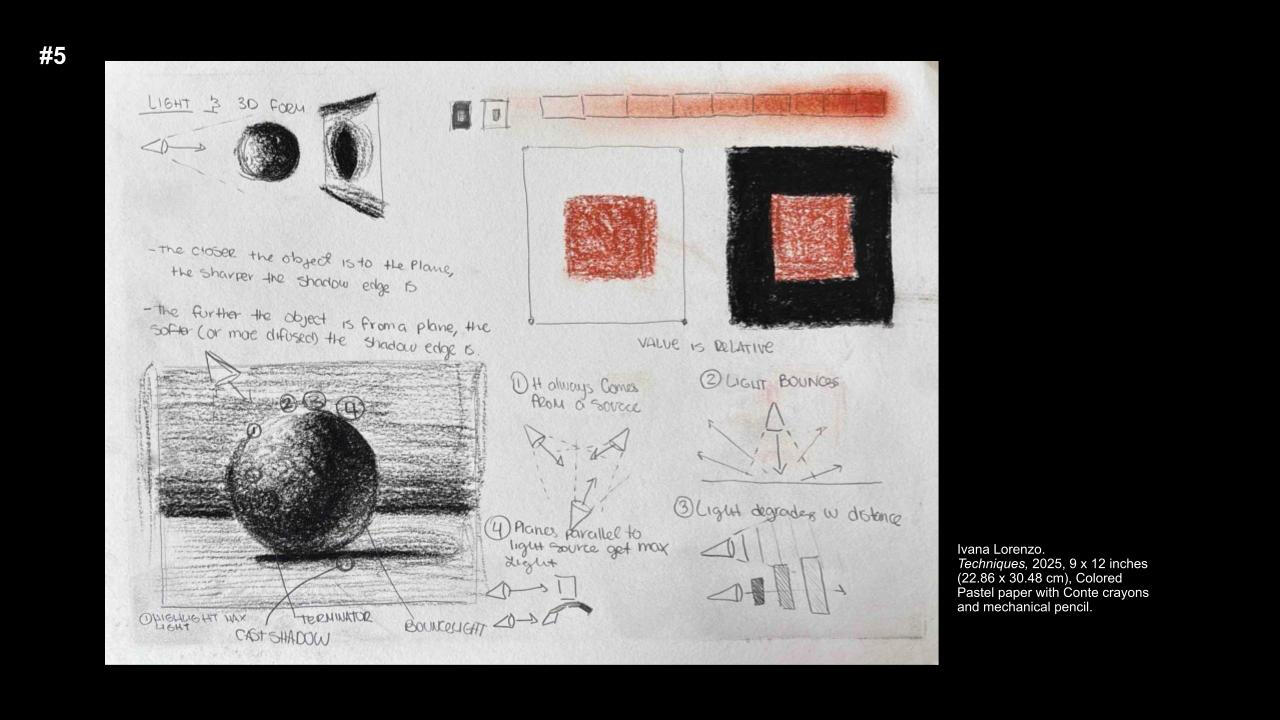 #5
LIGHT & 3D FORM
- the closer the object is to the plane,
the sharper the shadow edge is
- the further the object is from a plane, the
softer (or moe difused) the shadow edge is.
VALUE IS RELATIVE
1 2 3 4
① HIGHLIGHT MAX
LIGHT
CAST SHADOW
TERMINATOR
BOUNCELIGHT
① It always comes
from a source
② LIGHT BOUNCES
③ Light degrades w distance
④ Planes parallel to
light source get max
light
Ivana Lorenzo.
Techniques, 2025, 9 x 12 inches
(22.86 x 30.48 cm), Colored
Pastel paper with Conte crayons
and mechanical pencil.